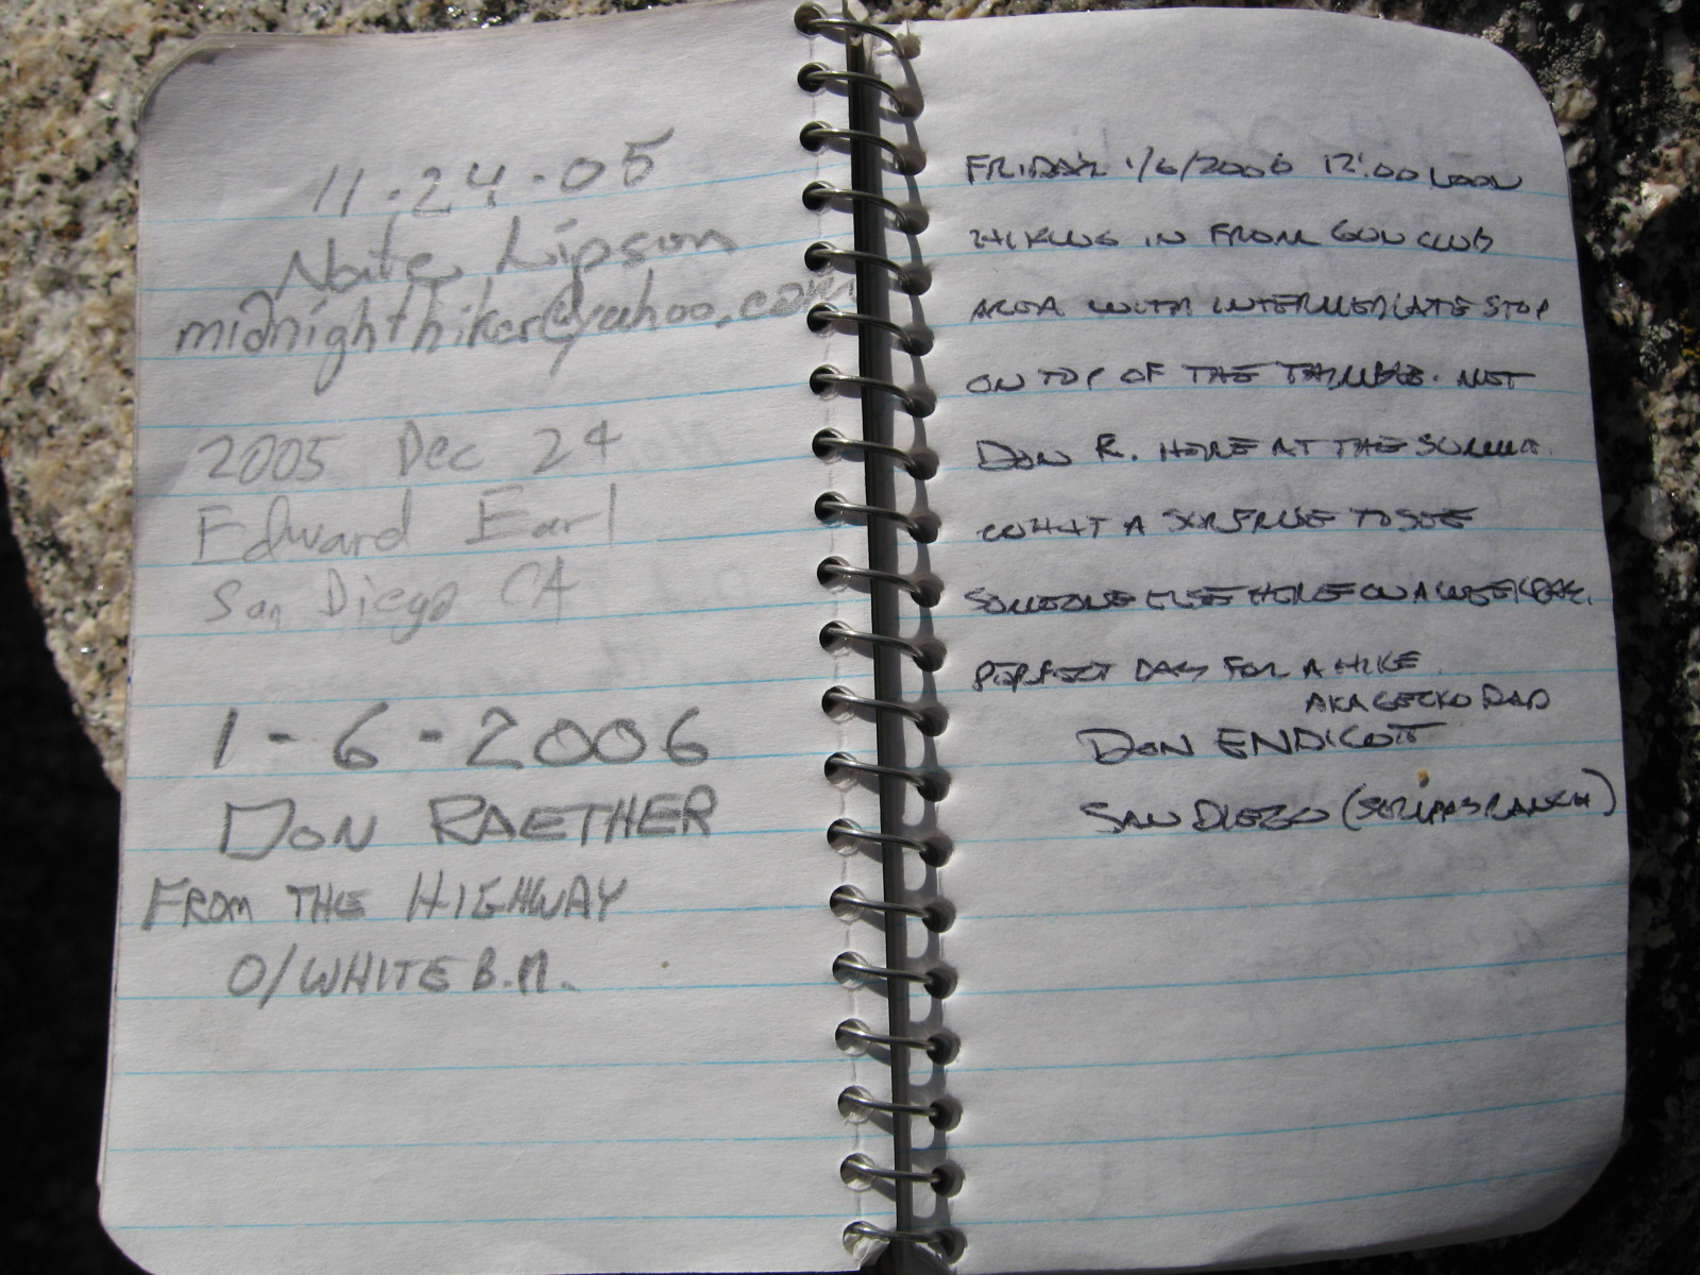 11-24-05
Nate Lipson
midnighthiker@yahoo.com
2005 Dec 24
Edward Earl
San Diego CA
1-6-2006
DON RAETHER
FROM THE HIGHWAY
O/WHITE B.M.
FRIDAY 1/6/2006 12:00 NOON
HIKING IN FROM GUN CLUB
AREA WITH INTERMEDIATE STOP
ON TOP OF THE THIMBLE. MET
DON R. HERE AT THE SUMMIT.
WHAT A SURPRISE TO SEE
SOMEONE ELSE HERE ON A WEEKDAY.
PERFECT DAY FOR A HIKE
AKA GECKO DAD
DON ENDICOTT
SAN DIEGO (SCRIPPS RANCH)